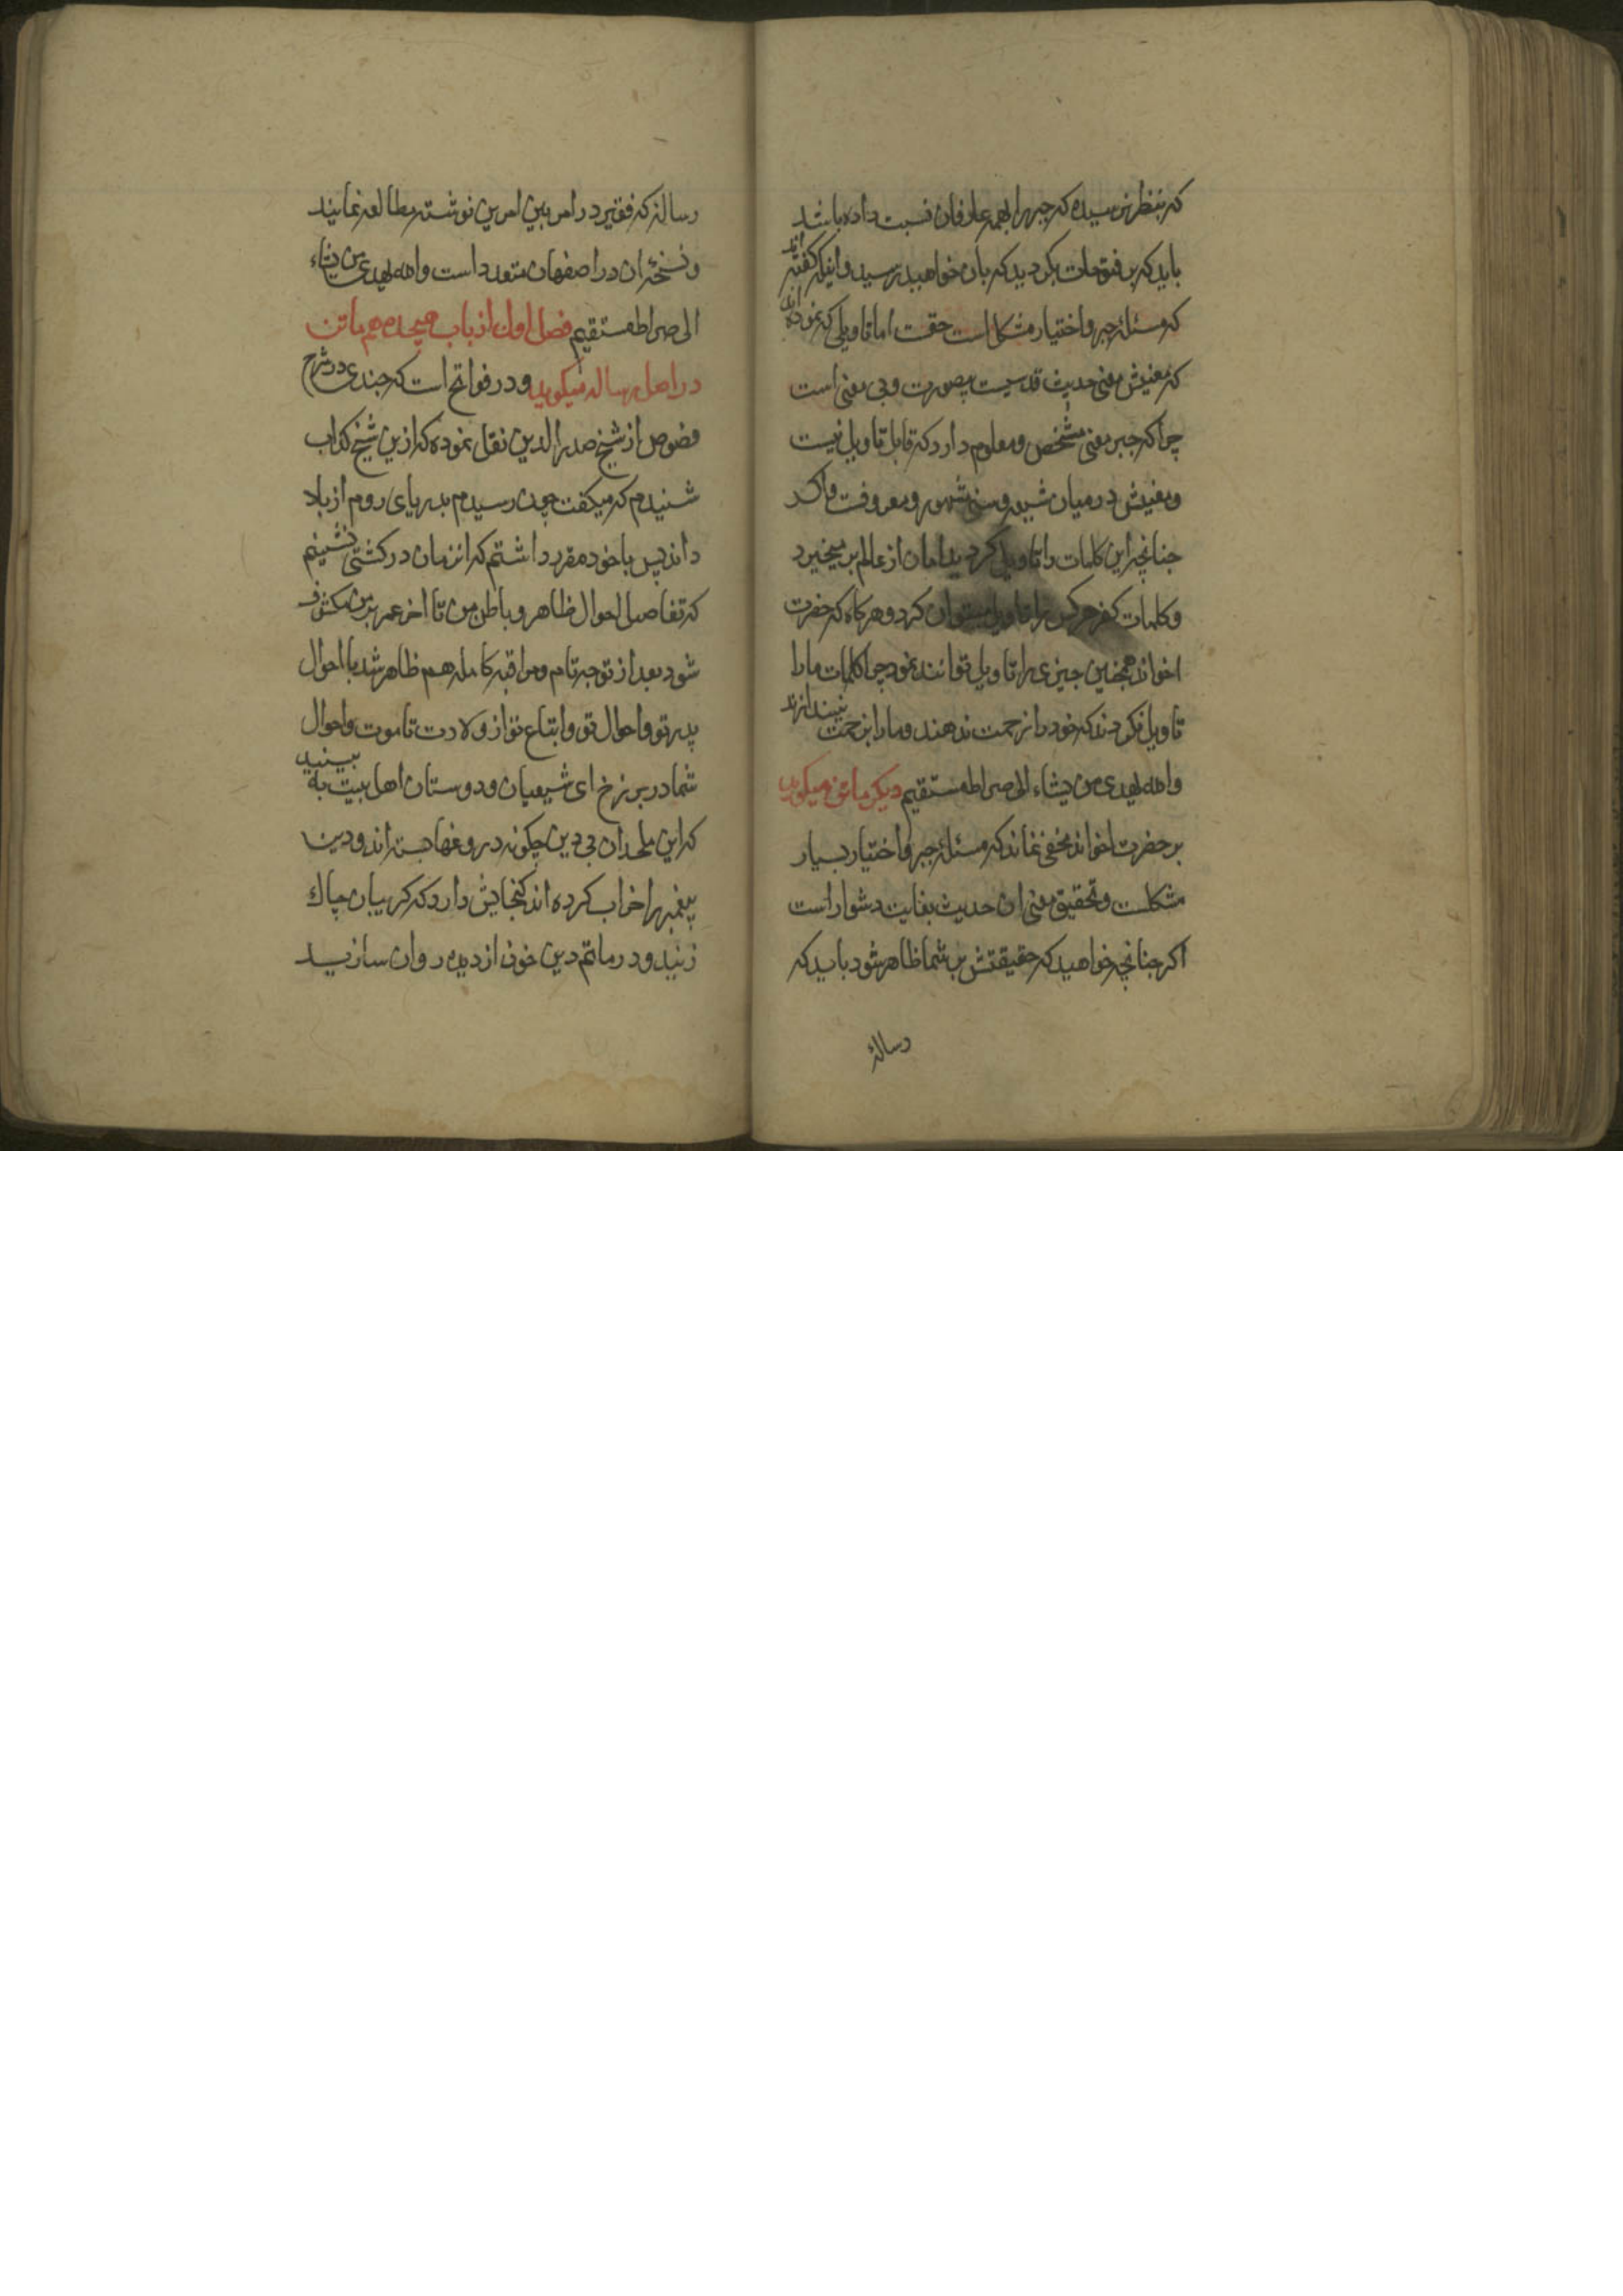 که بنظر نرسیده که جبر را بهمه عارفان نسبت داده باشد
باید که بر فتوحات بگردید که بان خواهید رسید و اینکه گفته اند
که مسئله جبر و اختیار مشکل است حقست اما تاویلی که نموده اند
که معنیش معنی حدیث قدسیست بیصورت و بی معنی است
چرا که جبر معنی مشخص و معلوم دارد که قابل تاویل نیست
و معنیش در میان شیعه و سنی مشهور و معروفست و اگر
جنانچه این کلمات را تاویل کردید امان از عالم بر میخیزد
و کلمات کفر هر کس را تاویل میتوان کرد و هرگاه که حضرت
اخواند همچنین چیزی را تاویل توانند نمود چرا کلمات ما را
تاویل نکردند که خود را زحمت ندهند و ما را بزحمت نیندازند
والله یهدی من یشاء الی صراط مستقیم دیگر ماتن میگوید
بر حضرت اخواند مخفی نماند که مسئله جبر و اختیار بسیار
مشکلست و تحقیق معنی ان حدیث بغایت دشوار است
اکر جنانچه خواهید که حقیقتش بر شما ظاهر شود باید که
رسالهٔ
رساله که فقیر در امر بین امرین نوشته مطالعه نمایند
و نسخهٔ ان در اصفهان متعدد است والله یهدی من یشاء
الی صراط مستقیم فصل اول از باب هیجدهم ماتن
در اصل رساله میگوید و در فواتح است که جندی در شرح
فصوص از شیخ صدر الدین نقل نموده که ازین شیخ کذاب
شنیدم که میکفت چون رسیدم بدریای روم از بلاد
اندلس با خود مقرر داشتم که انزمان در کشتی نشینم
که تفاصیل احوال ظاهر و باطن من تا اخر عمر بر من مکشوف
شود بعد از توجه تام و مراقبه کامله همه ظاهر شد با احوال
پدر تو و احوال تو و اتباع تو از ولادت تا موت و احوال
شما در برزخ ای شیعیان و دوستان اهل بیت به بینید
که این ملحدان بی دین چگونه دروغها بسته اند و دین
پیغمبر را خراب کرده اند گنجایش دارد که گریبان چاک
زنید و در ماتم دین خون از دیده روان سازید